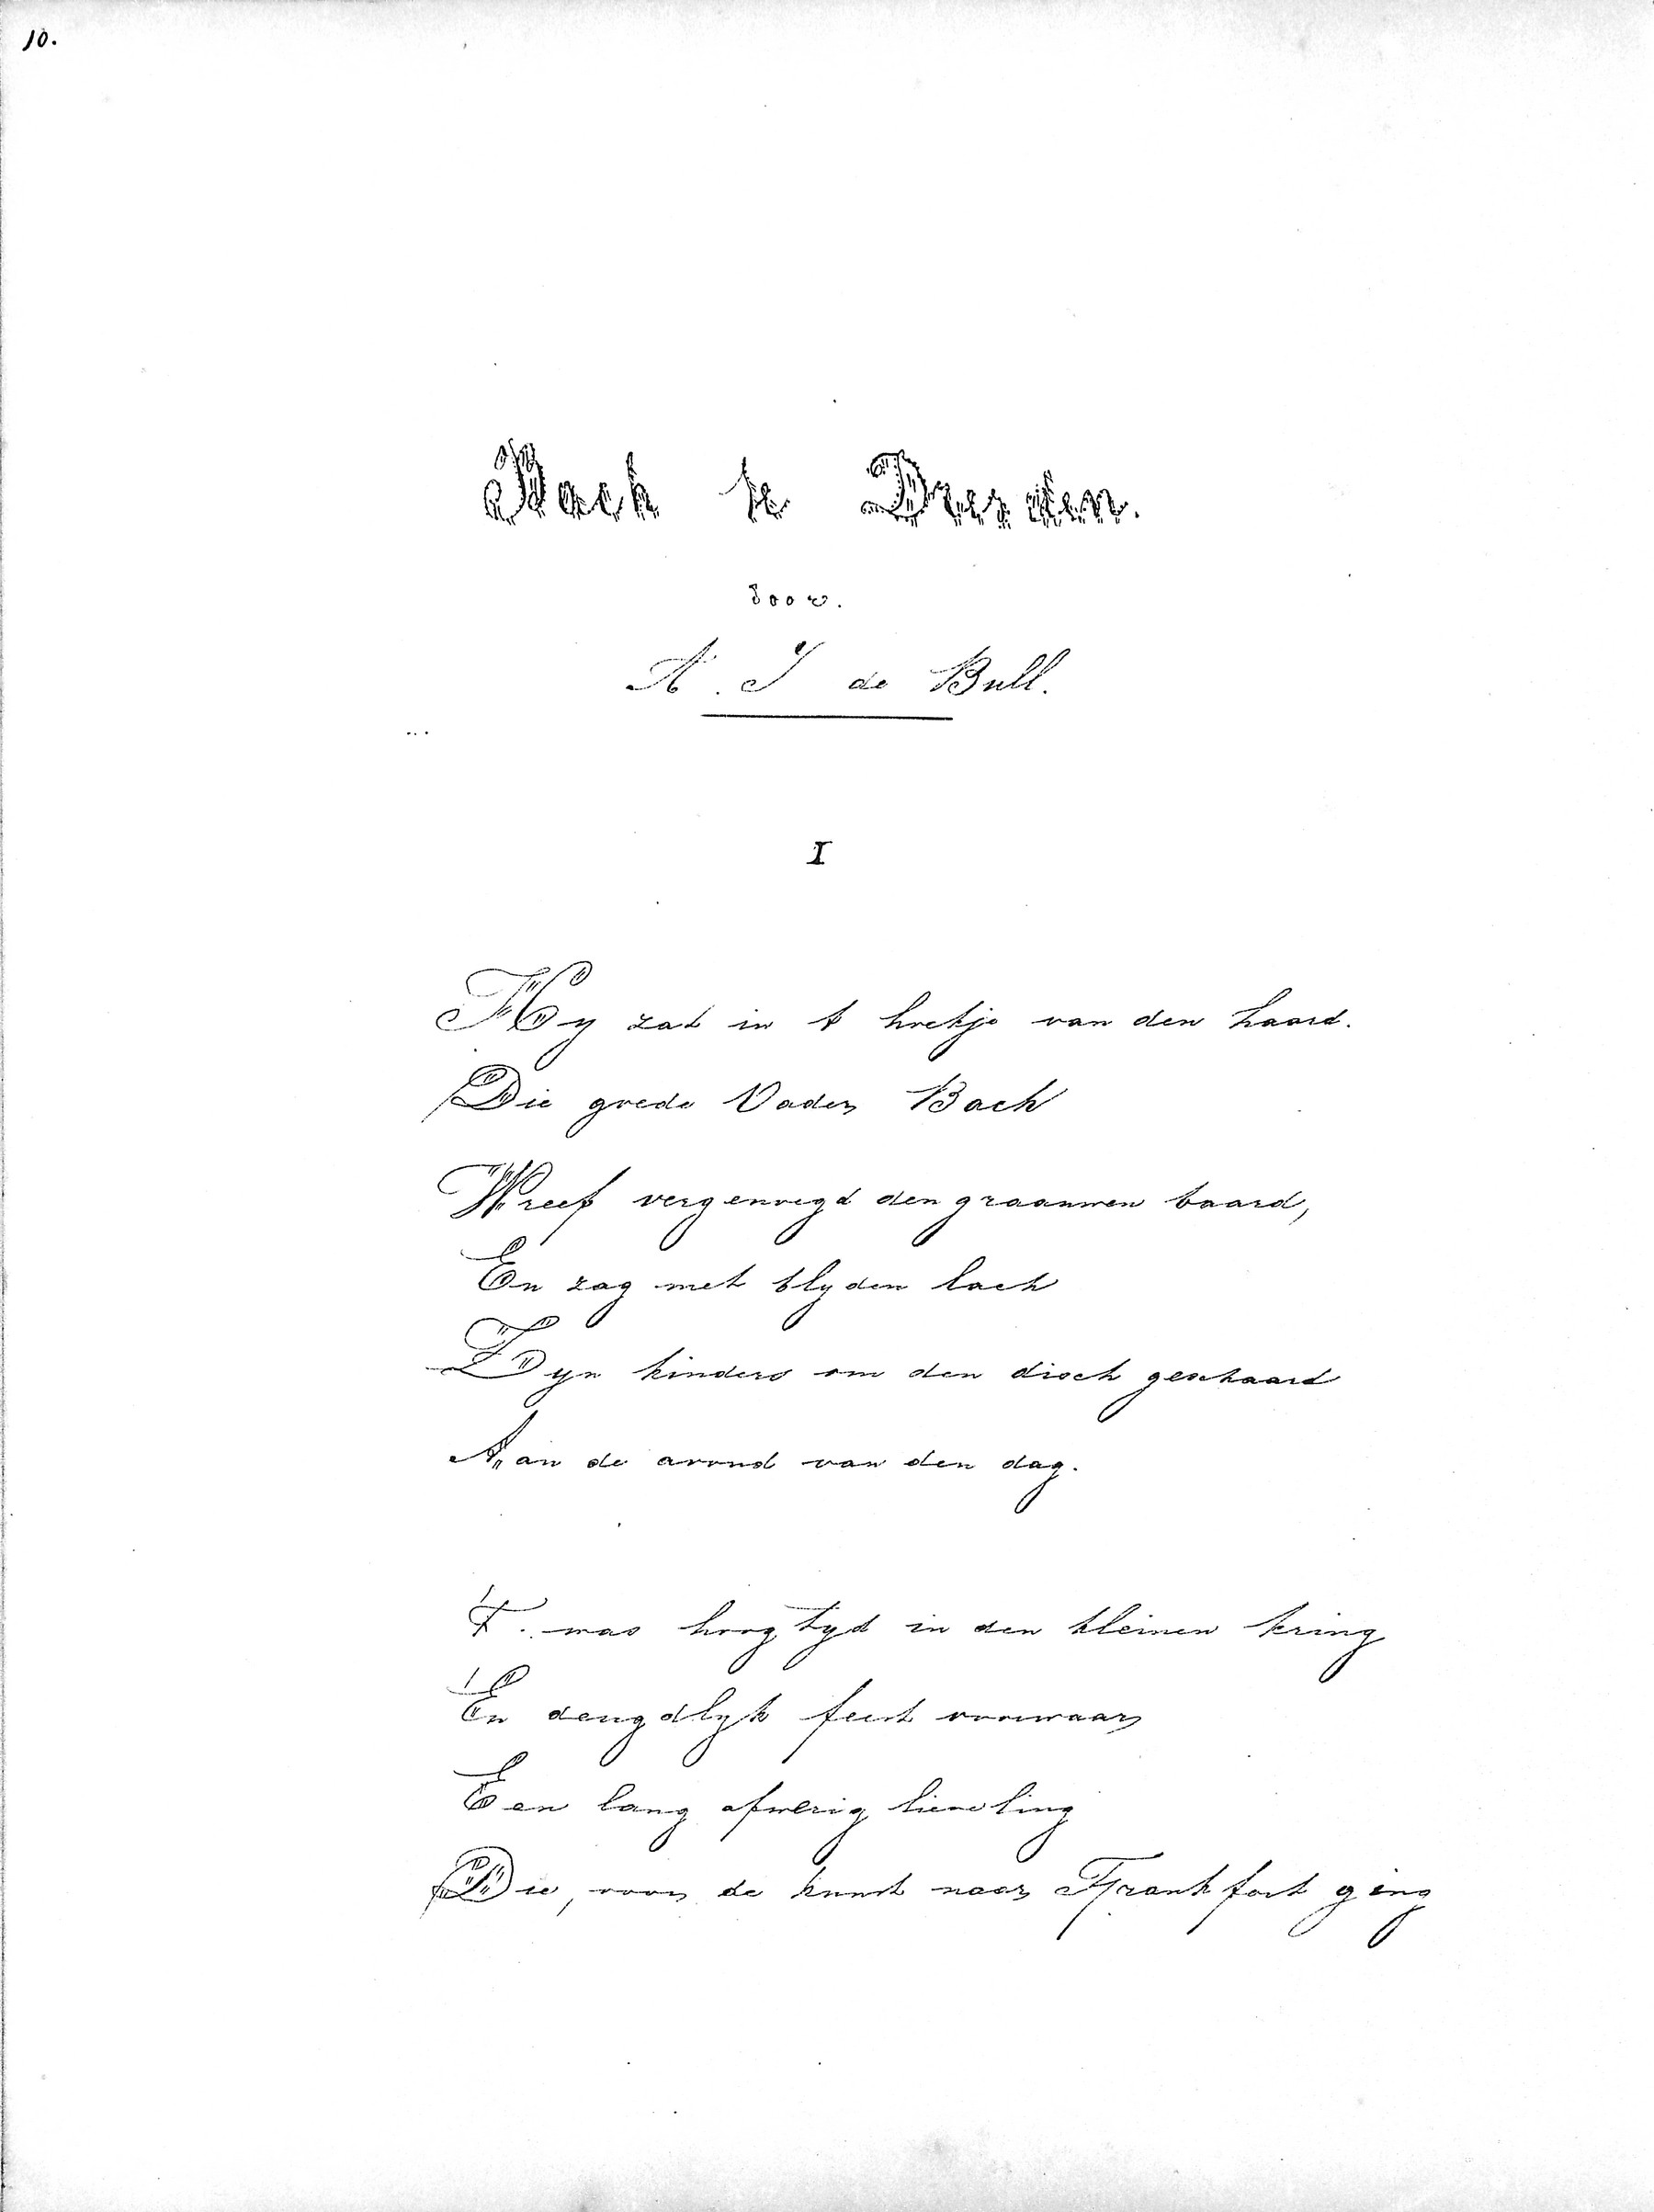 10.
Bach te Dresden.
door.
A. J de Bull.
I
Hy zat in t hoekje van den haard.
Die goede Vader Bach
Wreef vergenoegd den graauwen baard,
En zag met blyden lach
Zyn kinders om den disch geschaard
Aan de avond van den dag.
T. was hoogtyd in den kleinen kring
En deugdlyk feest voorwaar
Een lang afwezig lieveling
Die, voor de kunst naar Frankfort ging